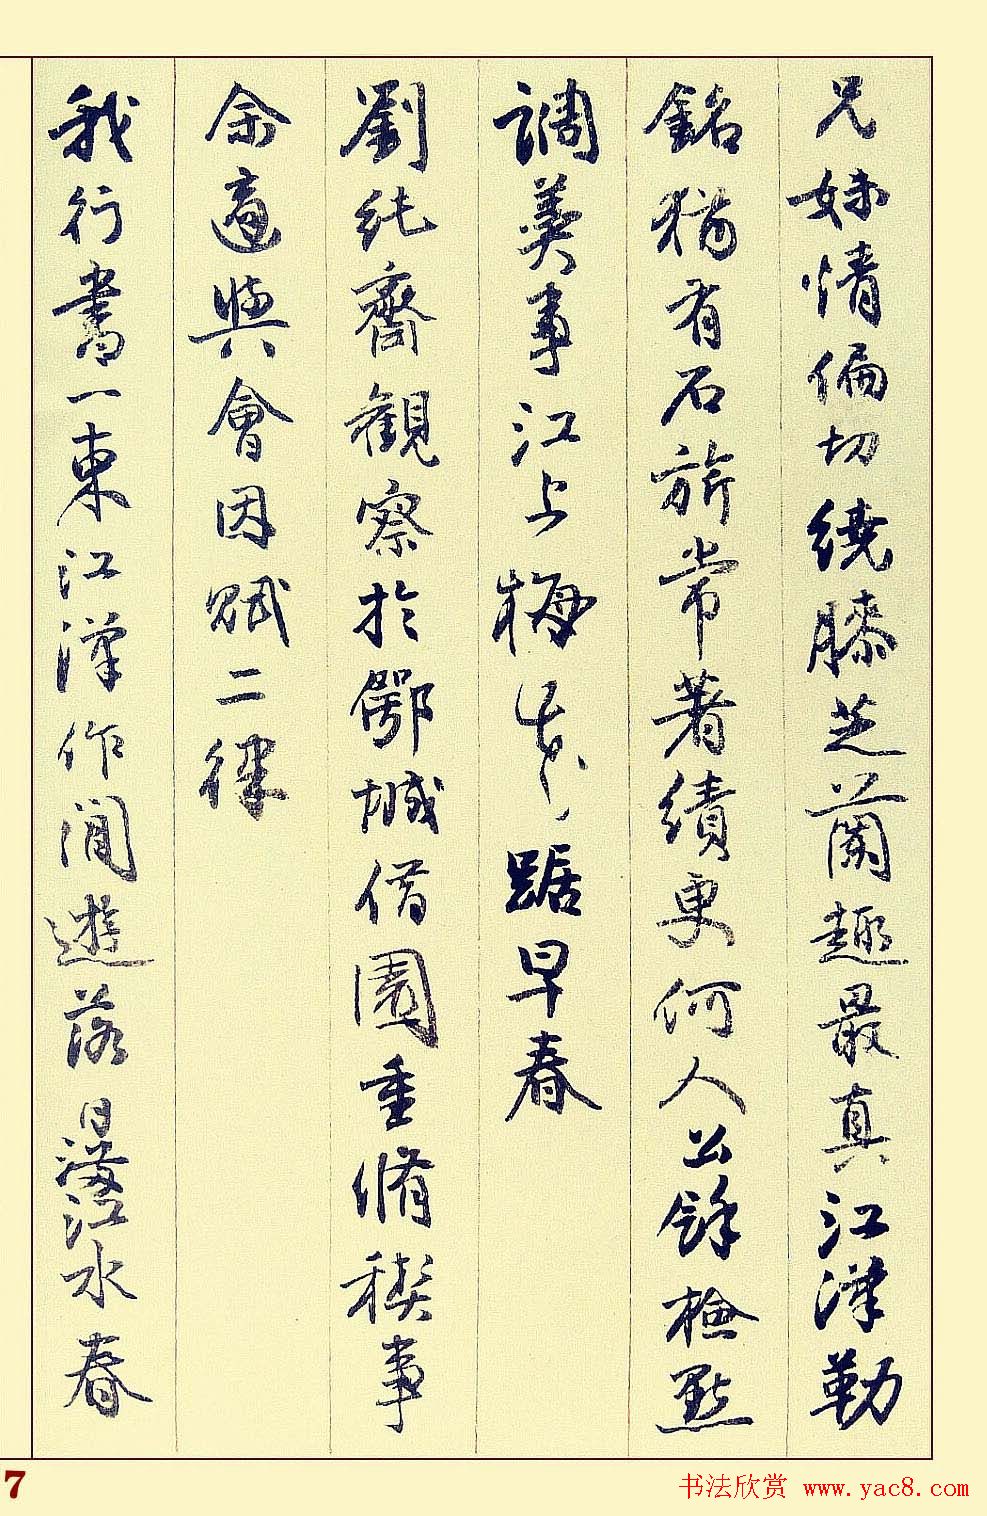 兄妹情偏切繞膝芝蘭趣最真江漢勒
銘猶有石旂常著績更何人公餘檢點
調羹事江上梅花踞早春
劉純齋觀察於鄂城借園重脩稧事
余適與會因賦二律
我行書一束江漢作閒遊落日滿江水春
7
书法欣赏 www.yac8.com